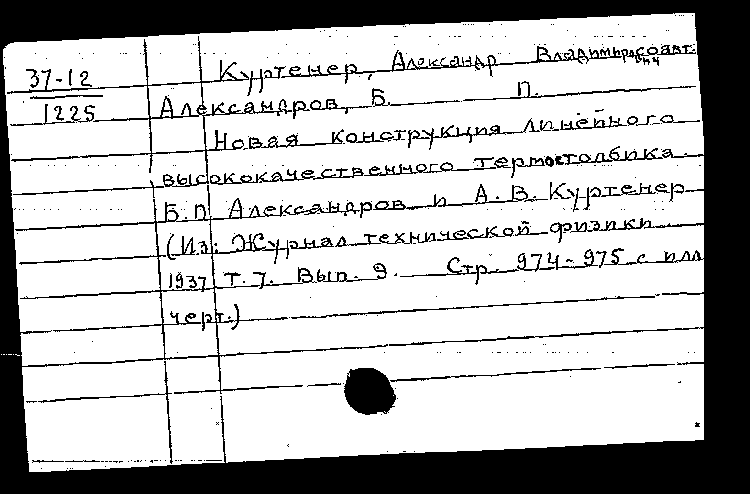 37-12
1225
Куртенер, Александр Владимирович соавт.
Александров, Б. П.
Новая конструкция линейного
высококачественного термостолбика.
Б.П. Александров и А.В. Куртенер
(Из: Журнал технической физики
1937 Т. 7. Вып. 9. Стр. 974-975 с илл
черт.)